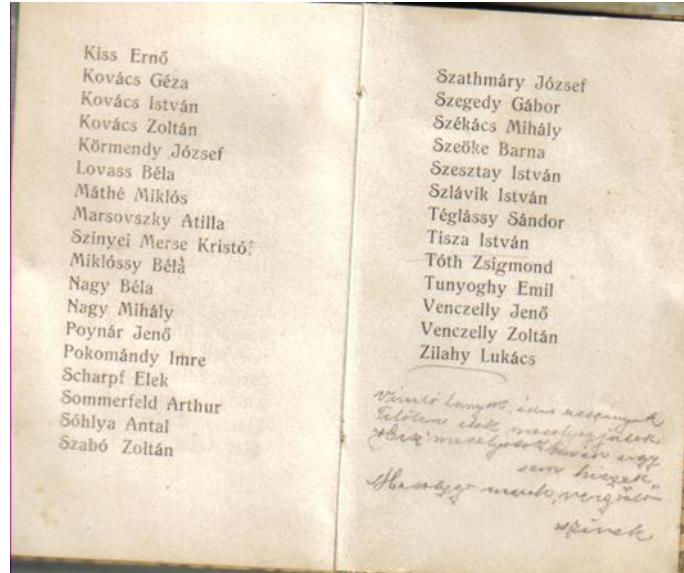 Kiss Ernő
Kovács Géza
Kovács István
Kovács Zoltán
Körmendy József
Lovass Béla
Máthé Miklós
Marsovszky Atilla
Szinyei Merse Kristóf
Miklóssy Béla
Nagy Béla
Nagy Mihály
Poynár Jenő
Pokomándy Imre
Scharpf Elek
Sommerfeld Arthur
Sóhlya Antal
Szabó Zoltán
Szathmáry József
Szegedy Gábor
Székács Mihály
Szeőke Barna
Szesztay István
Szlávik István
Téglássy Sándor
Tisza István
Tóth Zsigmond
Tunyoghy Emil
Venczelly Jenő
Venczelly Zoltán
Zilahy Lukács
sem hiszek"
szívek